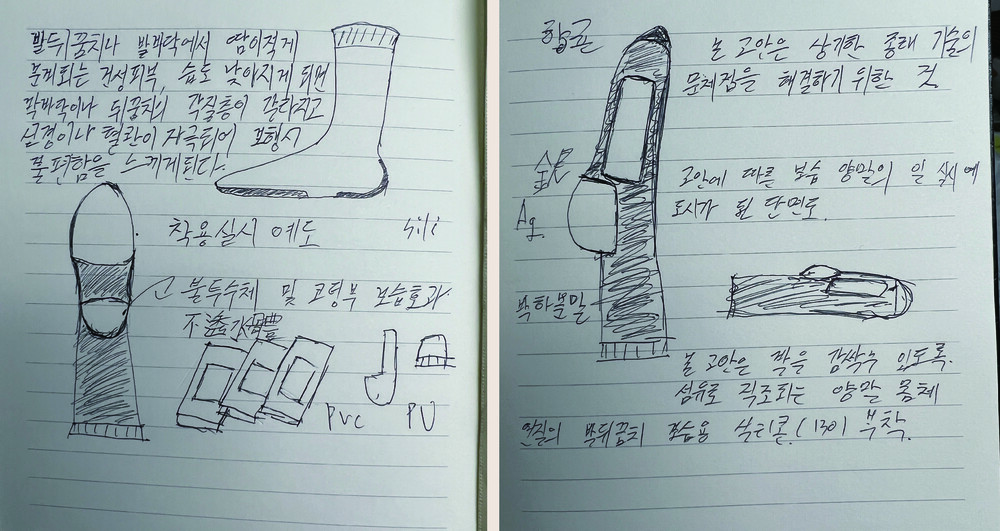 발뒤꿈치나 발바닥에서 땀이적게
분괴되는 건성피부, 습도 낮아지게 되면
각바닥이나 뒤꿈치의 각질층이 갈라지고
신경이나 혈관이 자극되어 보행시
불편함을 느끼게된다.
착용실시 예도
sili
불투수체 및 코팅부 보습효과
不透水體
PVC
PU
항균
본 고안은 상기한 종래 기술의
문제점을 해결하기 위한 것
고안에 따른 보습 양말의 일 실시 예
도시가 된 단면도.
Ag.
박하분말
본 고안은 착을 감싹수 있도록.
섬유로 직조되는 양말 몸체
연질의 발뒤꿈치 보습용 실리콘.(130) 부착.